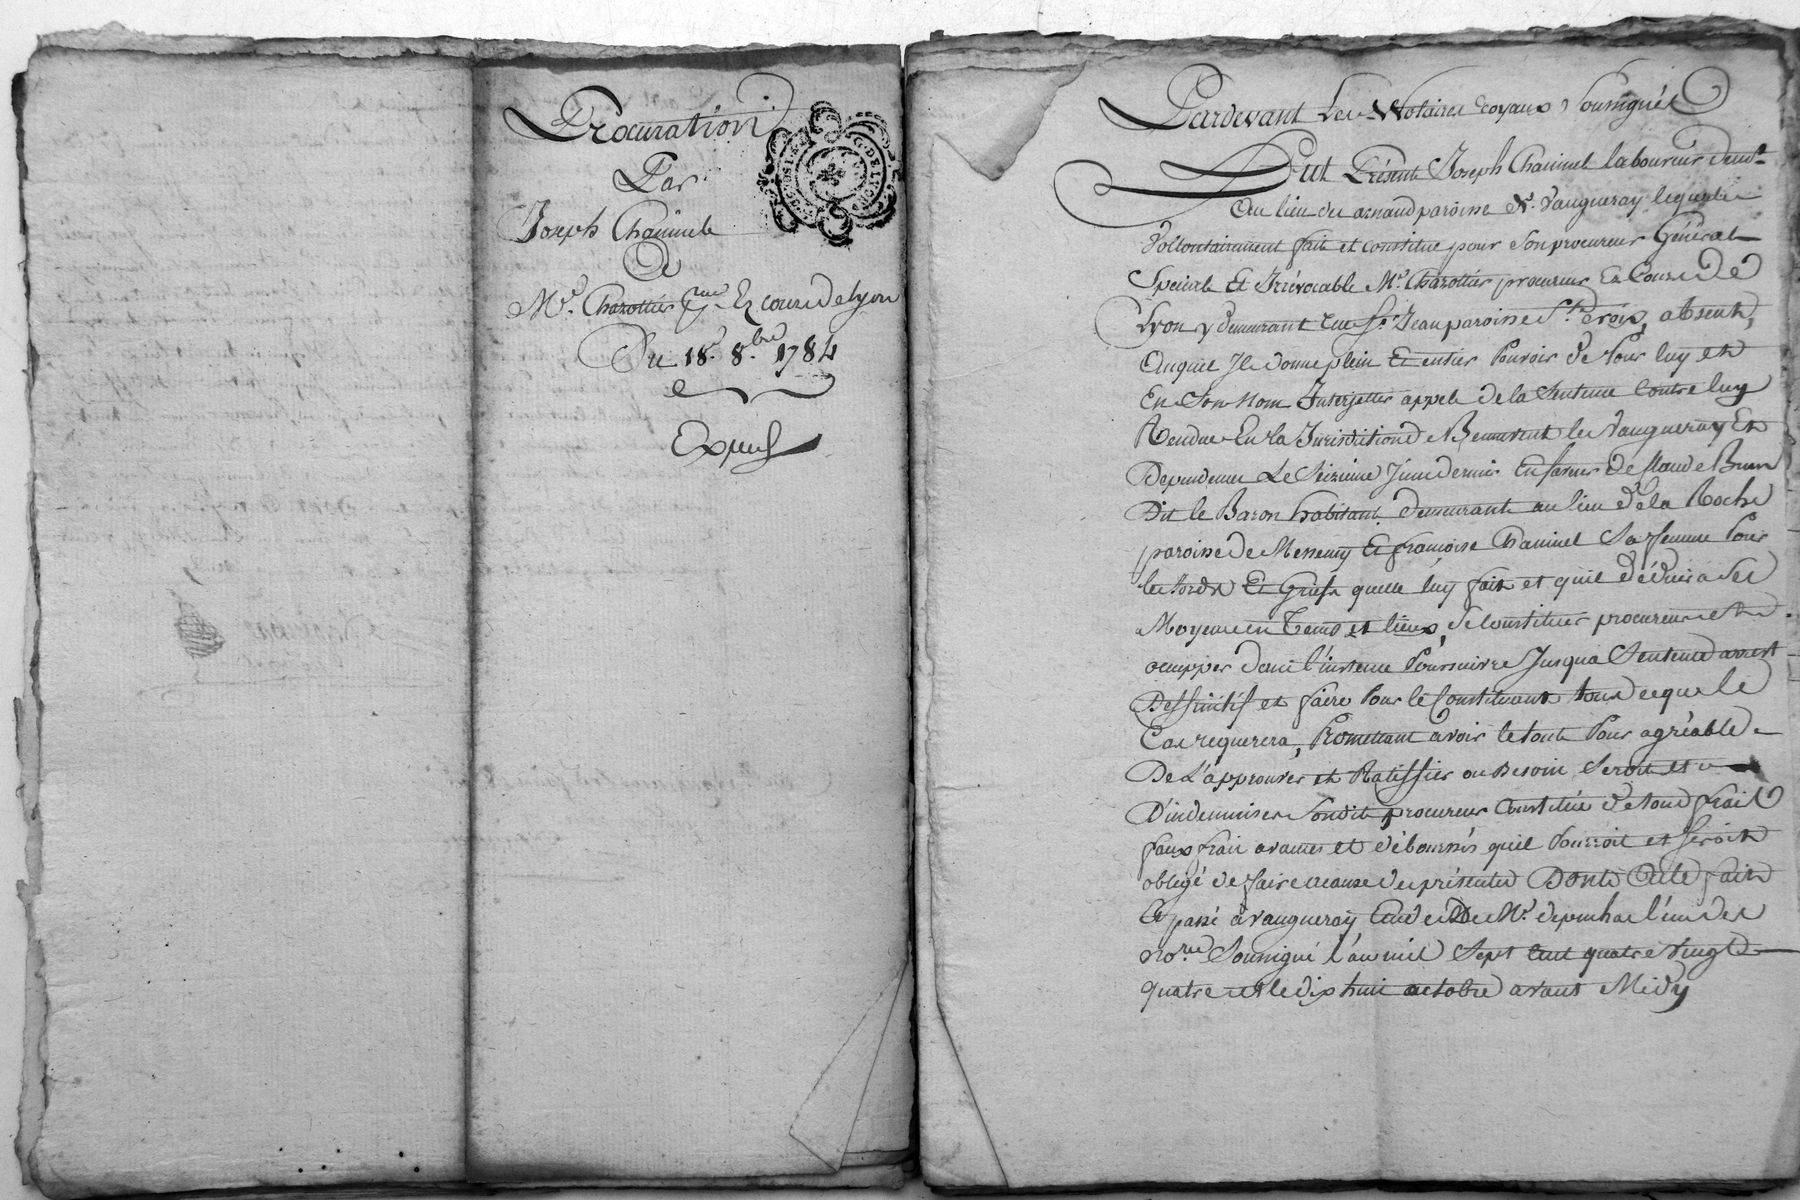 Procuration
Par
Joseph Chaumel
A
Me. Charottier preur Ez cours de Lyon
Du 18e. 8.bre 1784
Expedié
G. DE LYON
Pardevant Les Notaires royaux Soussignés
Fut Présent Joseph Chaumel laboureur demt.
Au lieu du arnaud paroisse de Vaugneray lequel de
Vollontairement fait et constitue pour son procureur Général
Special Et Irrévocable Me. Charottier procureur Ez Cours de
Lyon y demeurant rue St. Jean paroisse Ste. Croix, absent,
Auquel Il donne plein Et entier Pouvoir de Pour luy et
En Son Nom Interjetter appel de la Sentence Contre luy
Rendue En la Jurisdiction de Vaugneray Et
Dependence Le Seizieme Juin dernier En faveur de
Dit le Baron habitant demeurant au lieu de la Roche
paroisse de Messimy Et françoise Chaumel Sa femme Pour
les torts Et Griefs quelle luy fait et quil déduira Ses
Moyens en Temps et lieux, Se Constituer procureur et
occupper dans l'instence Poursuivre Jusqua Sentence arrest
Deffinitif et faire Pour le Constituant tous ce que le
Cas requerera, Promettant avoir le tout Pour agréable
De L'approuver et Ratiffier ou Besoin Seroit et
D'indemniser Sondit procureur Constitué de tous frais
faux frais avances et déboursés quil Pourroit et Seroit
obligé de faire acause des présentes Dont Acte fait
Et passé à Vaugneray Etude de Me. l'un des
no.res Soussigné l'an mil Sept Cent quatre vingt
quatre et le dix huit octobre avant Midy